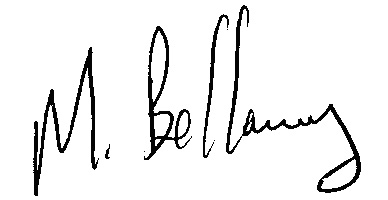 M. Bellamy